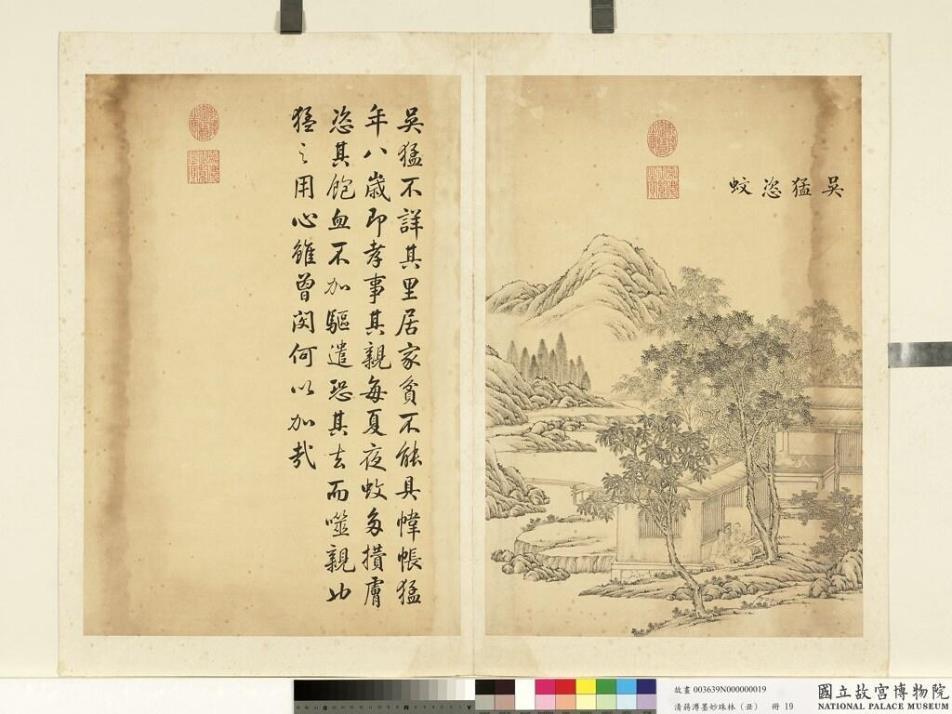 吳猛恣蚊
吳猛不詳其里居家貧不能具幃帳猛
年八歲即孝事其親每夏夜蚊多攢膚
恣其飽血不加驅遣恐其去而噬親也
猛之用心雖曾閔何以加哉
故畫 003639N000000019
清蔣溥墨妙珠林（丑） 冊 19
國立故宮博物院
NATIONAL PALACE MUSEUM